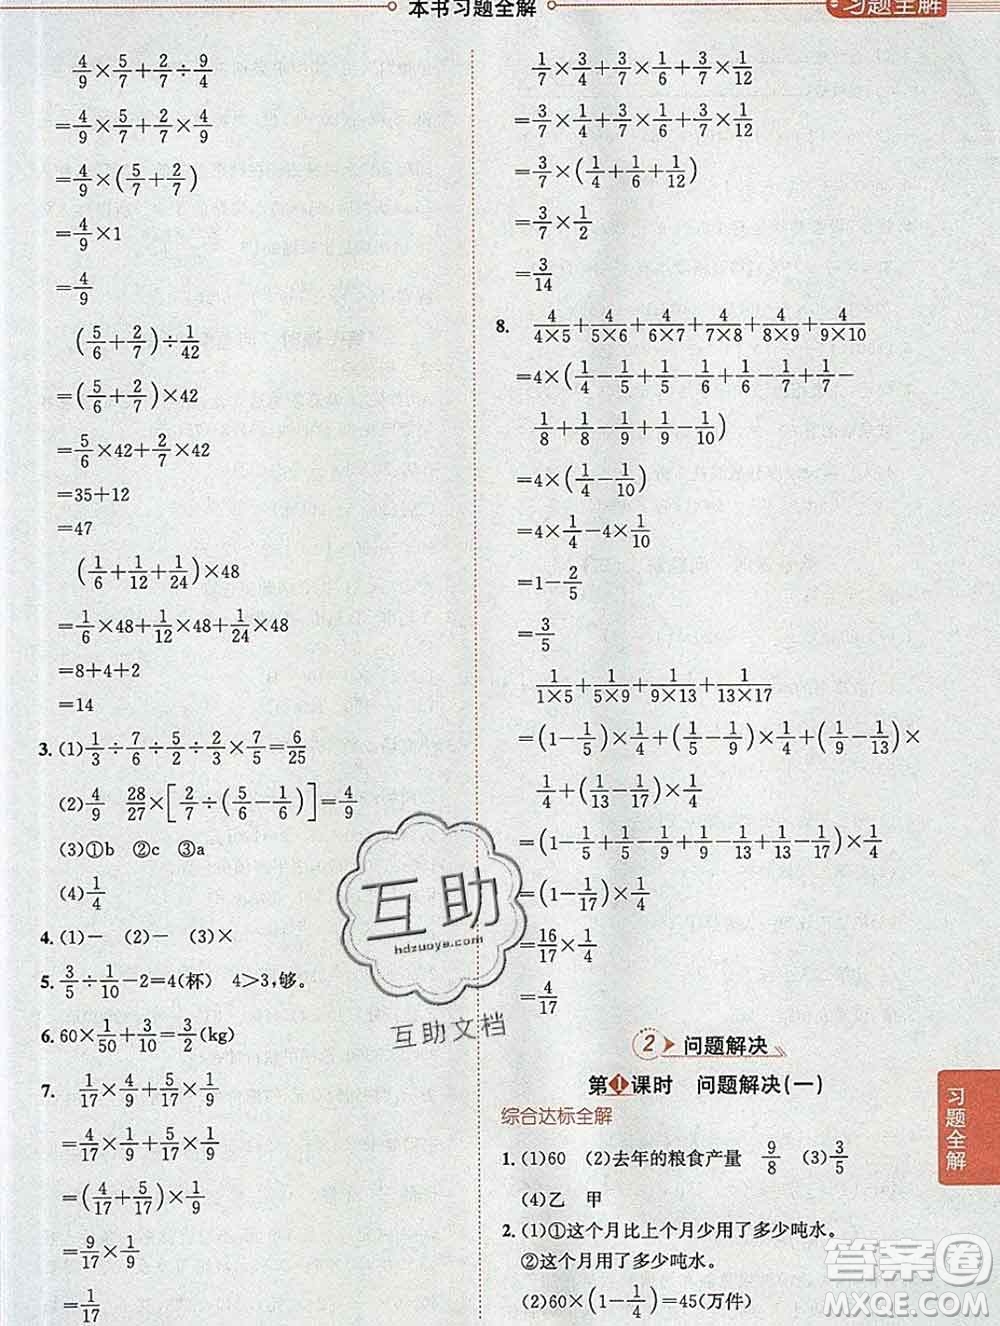 本书习题全解
习题全解
4/9×5/7+2/7÷9/4
=4/9×5/7+2/7×4/9
=4/9×(5/7+2/7)
=4/9×1
=4/9
(5/6+2/7)÷1/42
=(5/6+2/7)×42
=5/6×42+2/7×42
=35+12
=47
(1/6+1/12+1/24)×48
=1/6×48+1/12×48+1/24×48
=8+4+2
=14
3. (1)1/3÷7/6÷5/2÷2/3×7/5=6/25
(2)4/9 28/27×[2/7÷(5/6-1/6)]=4/9
(3)①b ②c ③a
(4)1/4
4. (1)— (2)— (3)×
5. 3/5÷1/10-2=4(杯) 4>3,够。
6. 60×1/50+3/10=3/2(kg)
7. 1/17×4/9+5/17×1/9
=4/17×1/9+5/17×1/9
=(4/17+5/17)×1/9
=9/17×1/9
=1/17
1/7×3/4+3/7×1/6+3/7×1/12
=3/7×1/4+3/7×1/6+3/7×1/12
=3/7×(1/4+1/6+1/12)
=3/7×1/2
=3/14
8. 4/4×5+4/5×6+4/6×7+4/7×8+4/8×9+4/9×10
=4×(1/4-1/5+1/5-1/6+1/6-1/7+1/7-
1/8+1/8-1/9+1/9-1/10)
=4×(1/4-1/10)
=4×1/4-4×1/10
=1-2/5
=3/5
1/1×5+1/5×9+1/9×13+1/13×17
=(1-1/5)×1/4+(1/5-1/9)×1/4+(1/9-1/13)×
1/4+(1/13-1/17)×1/4
=(1-1/5+1/5-1/9+1/9-1/13+1/13-1/17)×1/4
=(1-1/17)×1/4
=16/17×1/4
=4/17
2 问题解决
第1课时 问题解决(一)
综合达标全解
1. (1)60 (2)去年的粮食产量 9/8 (3)3/5
(4)乙 甲
2. (1)①这个月比上个月少用了多少吨水。
②这个月用了多少吨水。
(2)60×(1-1/4)=45(万件)
习题全解
互助
hdzuoye.com
互助文档
答案圈
MXQE.COM